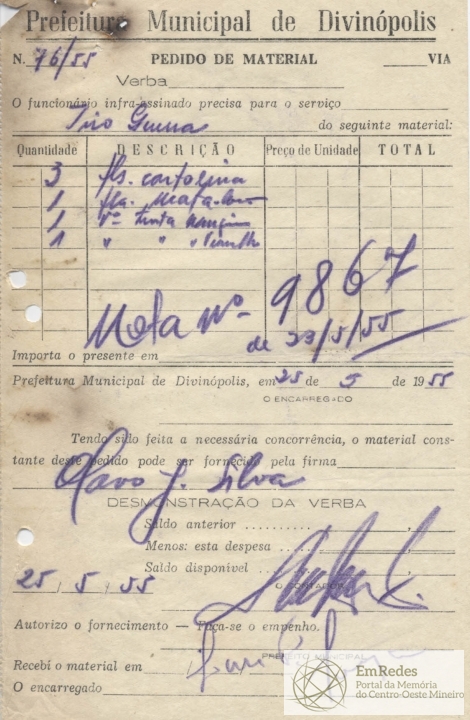 Prefeitura Municipal de Divinópolis
N. 76/55 PEDIDO DE MATERIAL VIA
Verba
O funcionário infra-assinado precisa para o serviço
Tiro Guerra do seguinte material:
Quantidade DESCRIÇÃO Preço de Unidade TOTAL
3 fls. cartolina
1 fla. Mata-
1 vº tinta
1 " "
Nota Nº 9867
de 23/5/55
Importa o presente em
Prefeitura Municipal de Divinópolis, em 25 de 5 de 1955
O ENCARREGADO
Tendo sido feita a necessária concorrência, o material cons-
tante deste pedido pode ser fornecido pela firma
Olavo J. Silva
DESMONSTRAÇÃO DA VERBA
Saldo anterior
Menos: esta despesa
Saldo disponível
25/5/55 O CONTADOR
Autorizo o fornecimento — Faça-se o empenho.
PREFEITO MUNICIPAL
Recebí o material em / /
O encarregado
EmRedes
Portal da Memória
do Centro-Oeste Mineiro